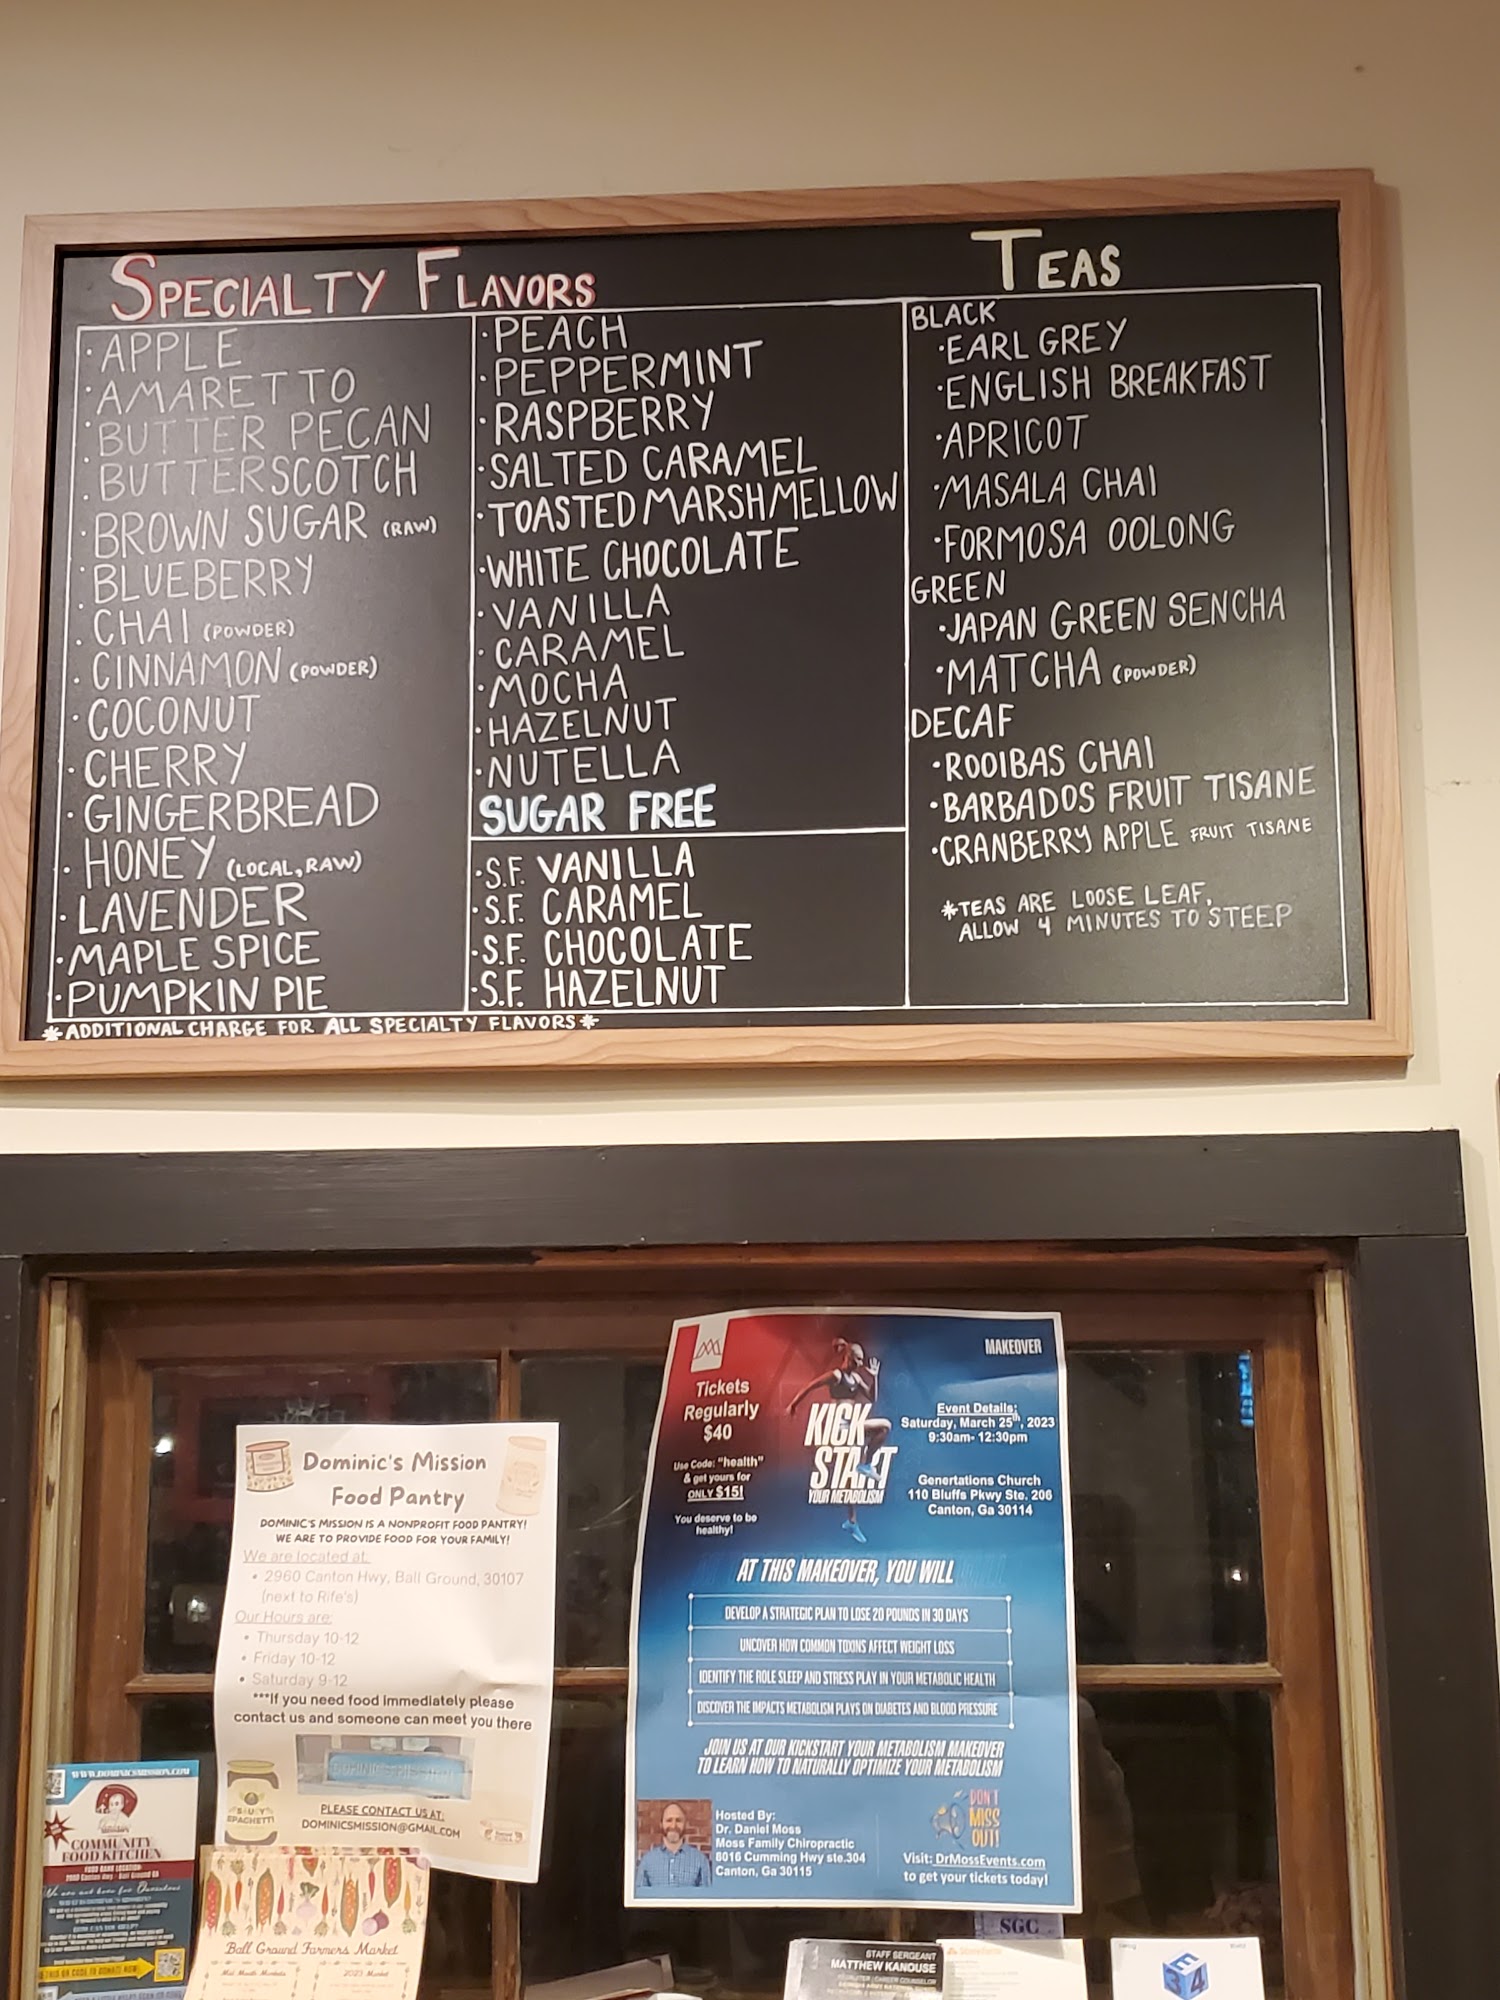 SPECIALTY FLAVORS
· APPLE
· AMARETTO
· BUTTER PECAN
· BUTTERSCOTCH
· BROWN SUGAR (RAW)
· BLUEBERRY
· CHAI (POWDER)
· CINNAMON (POWDER)
· COCONUT
· CHERRY
· GINGERBREAD
· HONEY (LOCAL, RAW)
· LAVENDER
· MAPLE SPICE
· PUMPKIN PIE
· PEACH
· PEPPERMINT
· RASPBERRY
· SALTED CARAMEL
· TOASTED MARSHMELLOW
· WHITE CHOCOLATE
· VANILLA
· CARAMEL
· MOCHA
· HAZELNUT
· NUTELLA
SUGAR FREE
· S.F. VANILLA
· S.F. CARAMEL
· S.F. CHOCOLATE
· S.F. HAZELNUT
*ADDITIONAL CHARGE FOR ALL SPECIALTY FLAVORS*
TEAS
BLACK
· EARL GREY
· ENGLISH BREAKFAST
· APRICOT
· MASALA CHAI
· FORMOSA OOLONG
GREEN
· JAPAN GREEN SENCHA
· MATCHA (POWDER)
DECAF
· ROOIBAS CHAI
· BARBADOS FRUIT TISANE
· CRANBERRY APPLE FRUIT TISANE
*TEAS ARE LOOSE LEAF,
ALLOW 4 MINUTES TO STEEP
Dominic's Mission
Food Pantry
DOMINIC'S MISSION IS A NONPROFIT FOOD PANTRY!
WE ARE TO PROVIDE FOOD FOR YOUR FAMILY!
We are located at:
• 2960 Canton Hwy, Ball Ground, 30107
(next to Rife's)
Our Hours are:
• Thursday 10-12
• Friday 10-12
• Saturday 9-12
***If you need food immediately please
contact us and someone can meet you there
DOMINIC'S MISSION
SAUCY
SPAGHETTI
PLEASE CONTACT US AT:
DOMINICSMISSION@GMAIL.COM
Tickets
Regularly
$40
Use Code: "health"
& get yours for
ONLY $15!
You deserve to be
healthy!
KICK
START
YOUR METABOLISM
MAKEOVER
Event Details:
Saturday, March 25th, 2023
9:30am- 12:30pm
Genertations Church
110 Bluffs Pkwy Ste. 206
Canton, Ga 30114
AT THIS MAKEOVER, YOU WILL
DEVELOP A STRATEGIC PLAN TO LOSE 20 POUNDS IN 30 DAYS
UNCOVER HOW COMMON TOXINS AFFECT WEIGHT LOSS
IDENTIFY THE ROLE SLEEP AND STRESS PLAY IN YOUR METABOLIC HEALTH
DISCOVER THE IMPACTS METABOLISM PLAYS ON DIABETES AND BLOOD PRESSURE
JOIN US AT OUR KICKSTART YOUR METABOLISM MAKEOVER
TO LEARN HOW TO NATURALLY OPTIMIZE YOUR METABOLISM
Hosted By:
Dr. Daniel Moss
Moss Family Chiropractic
8016 Cumming Hwy ste.304
Canton, Ga 30115
DON'T
MISS
OUT!
Visit: DrMossEvents.com
to get your tickets today!
WWW.DOMINICSMISSION.COM
COMMUNITY
FOOD KITCHEN
FOOD BANK LOCATION:
2960 Canton Hwy - Ball Ground GA
HOW CAN YOU HELP?
Ball Ground Farmers Market
2023 Market
SGC
STAFF SERGEANT
MATTHEW KANOUSE
E
3 4